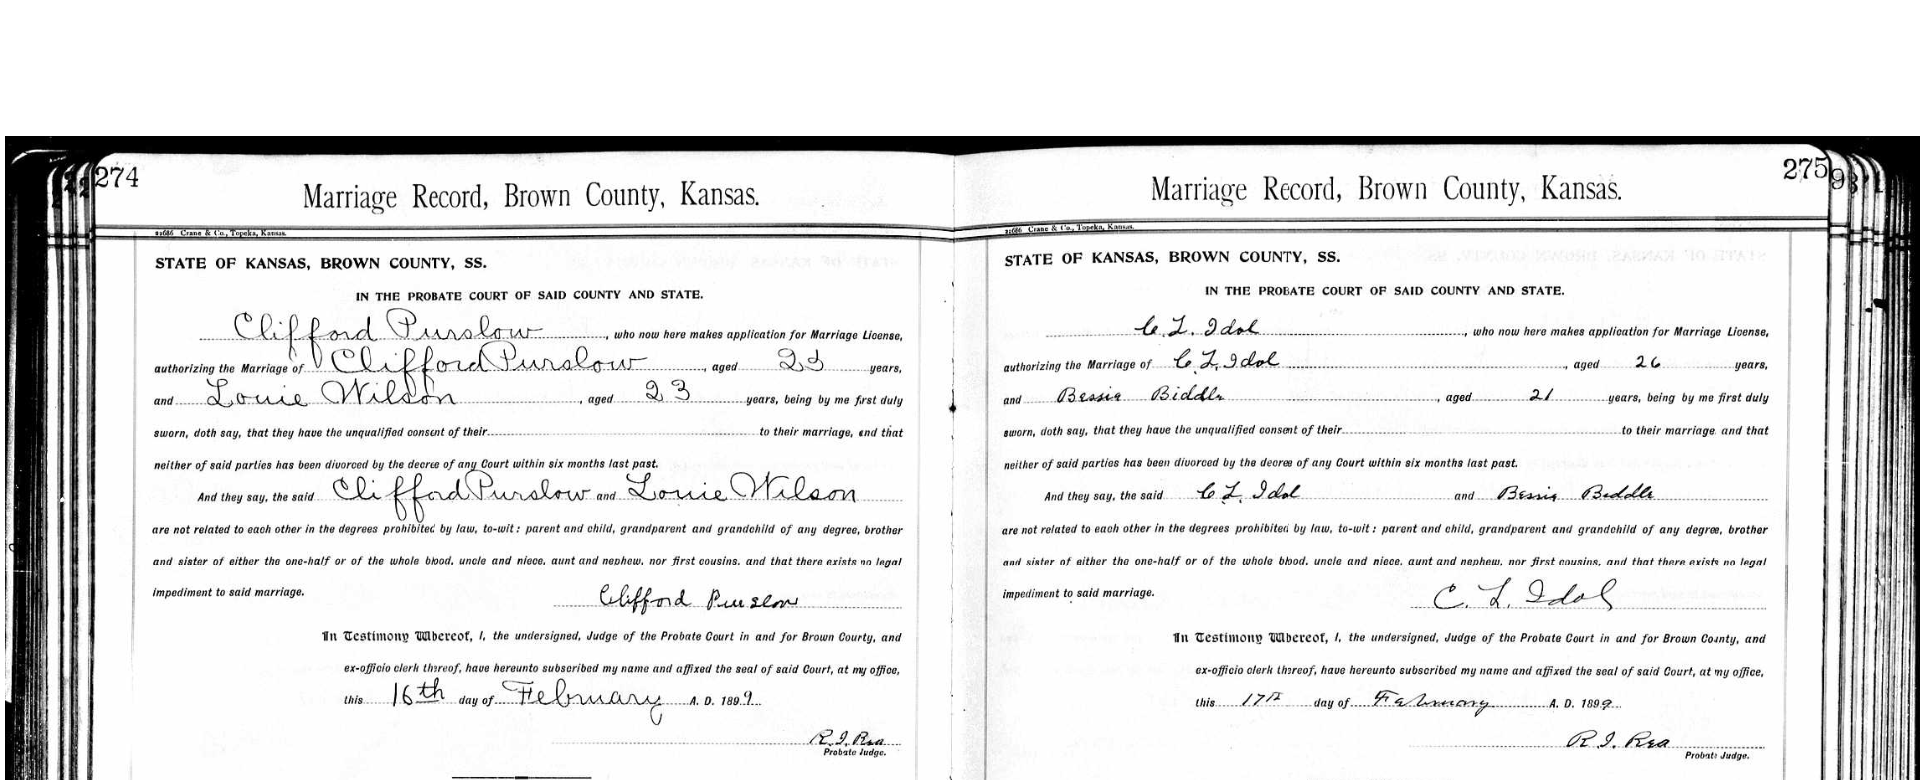 274
Marriage Record, Brown County, Kansas.
21686 Crane & Co., Topeka, Kansas.
STATE OF KANSAS, BROWN COUNTY, SS.
IN THE PROBATE COURT OF SAID COUNTY AND STATE.
Clifford Purslow, who now here makes application for Marriage License,
authorizing the Marriage of Clifford Purslow, aged 23 years,
and Louie Wilson, aged 23 years, being by me first duly
sworn, doth say, that they have the unqualified consent of their to their marriage, and that
neither of said parties has been divorced by the decree of any Court within six months last past.
And they say, the said Clifford Purslow and Louie Wilson
are not related to each other in the degrees prohibited by law, to-wit: parent and child, grandparent and grandchild of any degree, brother
and sister of either the one-half or of the whole blood, uncle and niece, aunt and nephew, nor first cousins, and that there exists no legal
impediment to said marriage. Clifford Purslow
In Testimony Whereof, I, the undersigned, Judge of the Probate Court in and for Brown County, and
ex-officio clerk thereof, have hereunto subscribed my name and affixed the seal of said Court, at my office,
this 16th day of February A. D. 1899.
R. I. Rea
Probate Judge.
275
Marriage Record, Brown County, Kansas.
21686 Crane & Co., Topeka, Kansas.
STATE OF KANSAS, BROWN COUNTY, SS.
IN THE PROBATE COURT OF SAID COUNTY AND STATE.
C. L. Idol, who now here makes application for Marriage License,
authorizing the Marriage of C. L. Idol, aged 26 years,
and Bessie Biddle, aged 21 years, being by me first duly
sworn, doth say, that they have the unqualified consent of their to their marriage and that
neither of said parties has been divorced by the decree of any Court within six months last past.
And they say, the said C L. Idol and Bessie Biddle
are not related to each other in the degrees prohibited by law, to-wit: parent and child, grandparent and grandchild of any degree, brother
and sister of either the one-half or of the whole blood, uncle and niece, aunt and nephew, nor first cousins, and that there exists no legal
impediment to said marriage. C. L. Idol
In Testimony Whereof, I, the undersigned, Judge of the Probate Court in and for Brown County, and
ex-officio clerk thereof, have hereunto subscribed my name and affixed the seal of said Court, at my office,
this 17th day of February A. D. 1899.
R. I. Rea
Probate Judge.